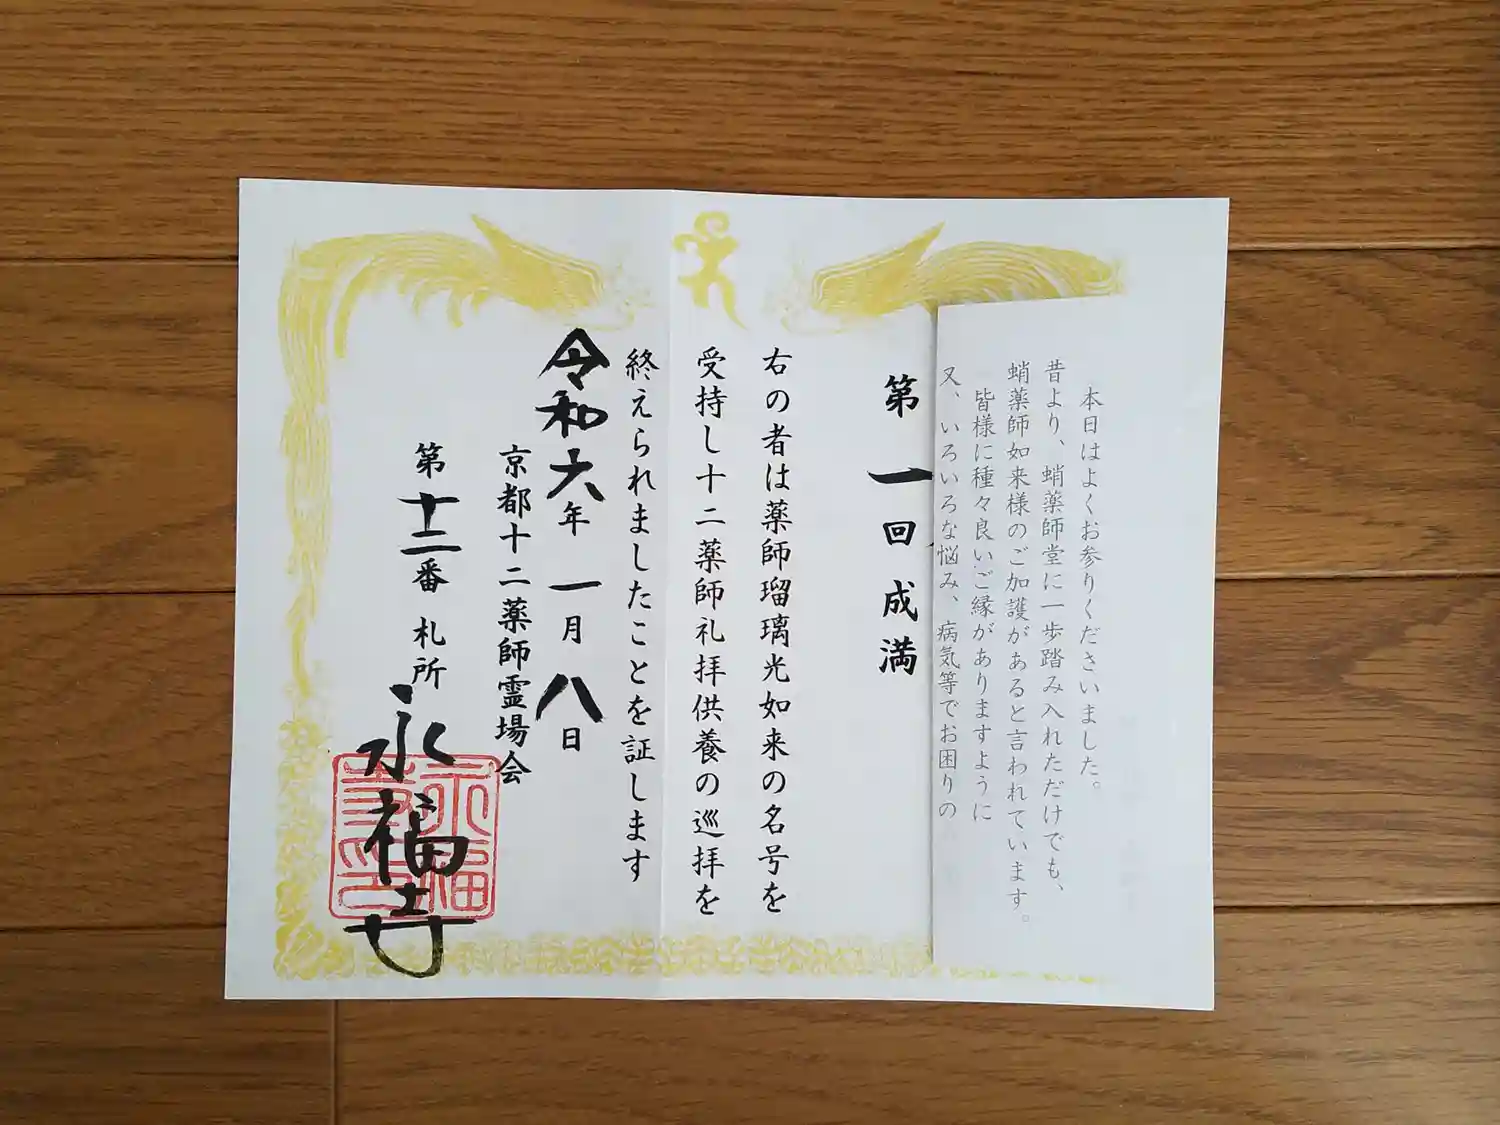 本日はよくお参りくださいました。
昔より、蛸薬師堂に一歩踏み入れただけでも、
蛸薬師如来様のご加護があると言われています。
皆様に種々良いご縁がありますように
又、いろいろな悩み、病気等でお困りの
第一回成満
右の者は薬師瑠璃光如来の名号を
受持し十二薬師礼拝供養の巡拝を
終えられましたことを証します
令和六年一月八日
京都十二薬師霊場会
第十二番札所
永福寺